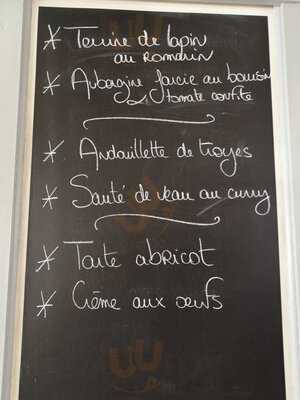 * Terrine de lapin
au Romarin
* Aubergine farcie au boursin
tomate confite
* Andouillette de troyes
* Sauté de veau au curry
* Tarte abricot
* Crème aux oeufs